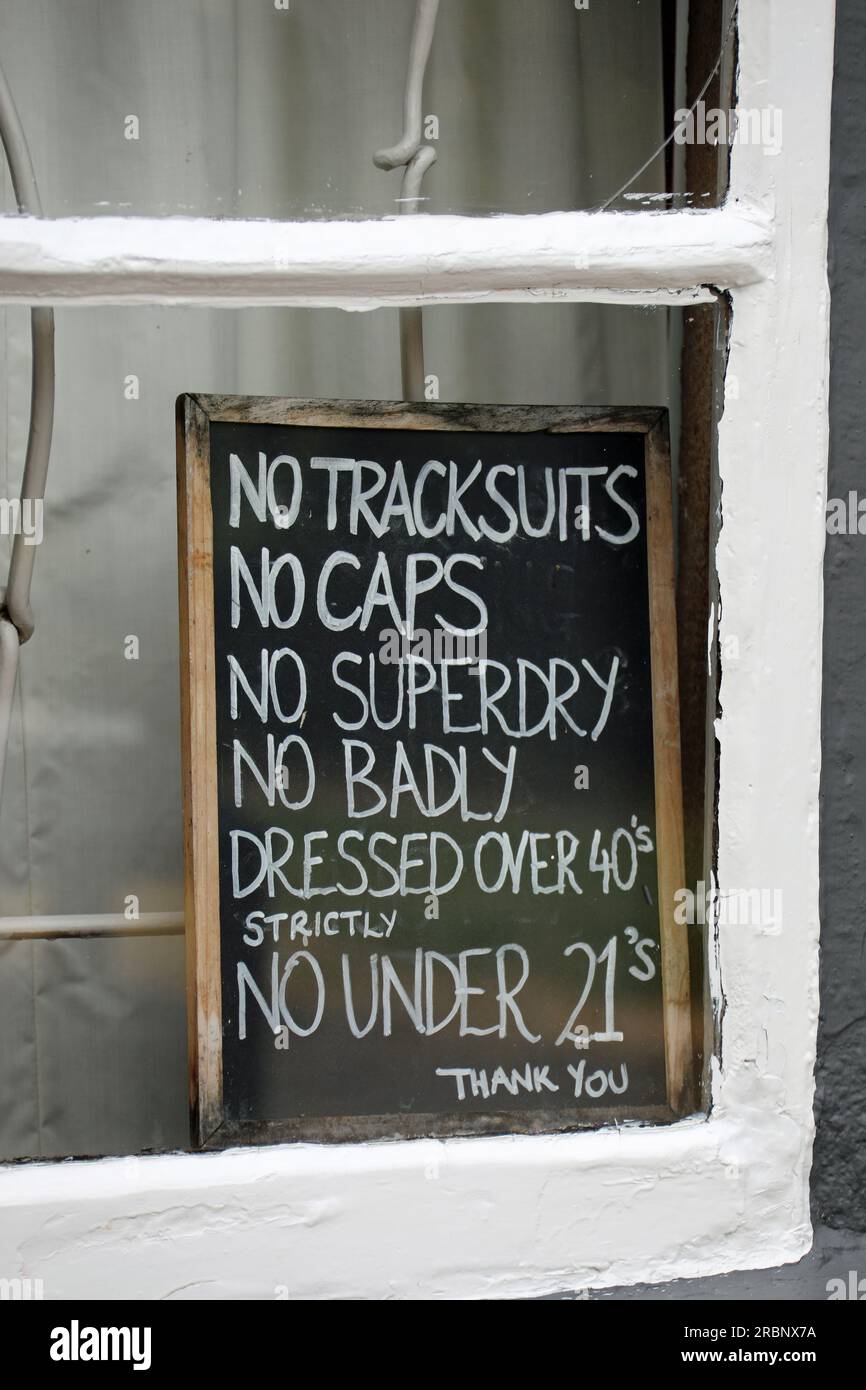 NO TRACKSUITS
NO CAPS
NO SUPERDRY
NO BADLY
DRESSED OVER 40's
STRICTLY
NO UNDER 21's
THANK YOU
alamy
Image ID: 2RBNX7A
www.alamy.com